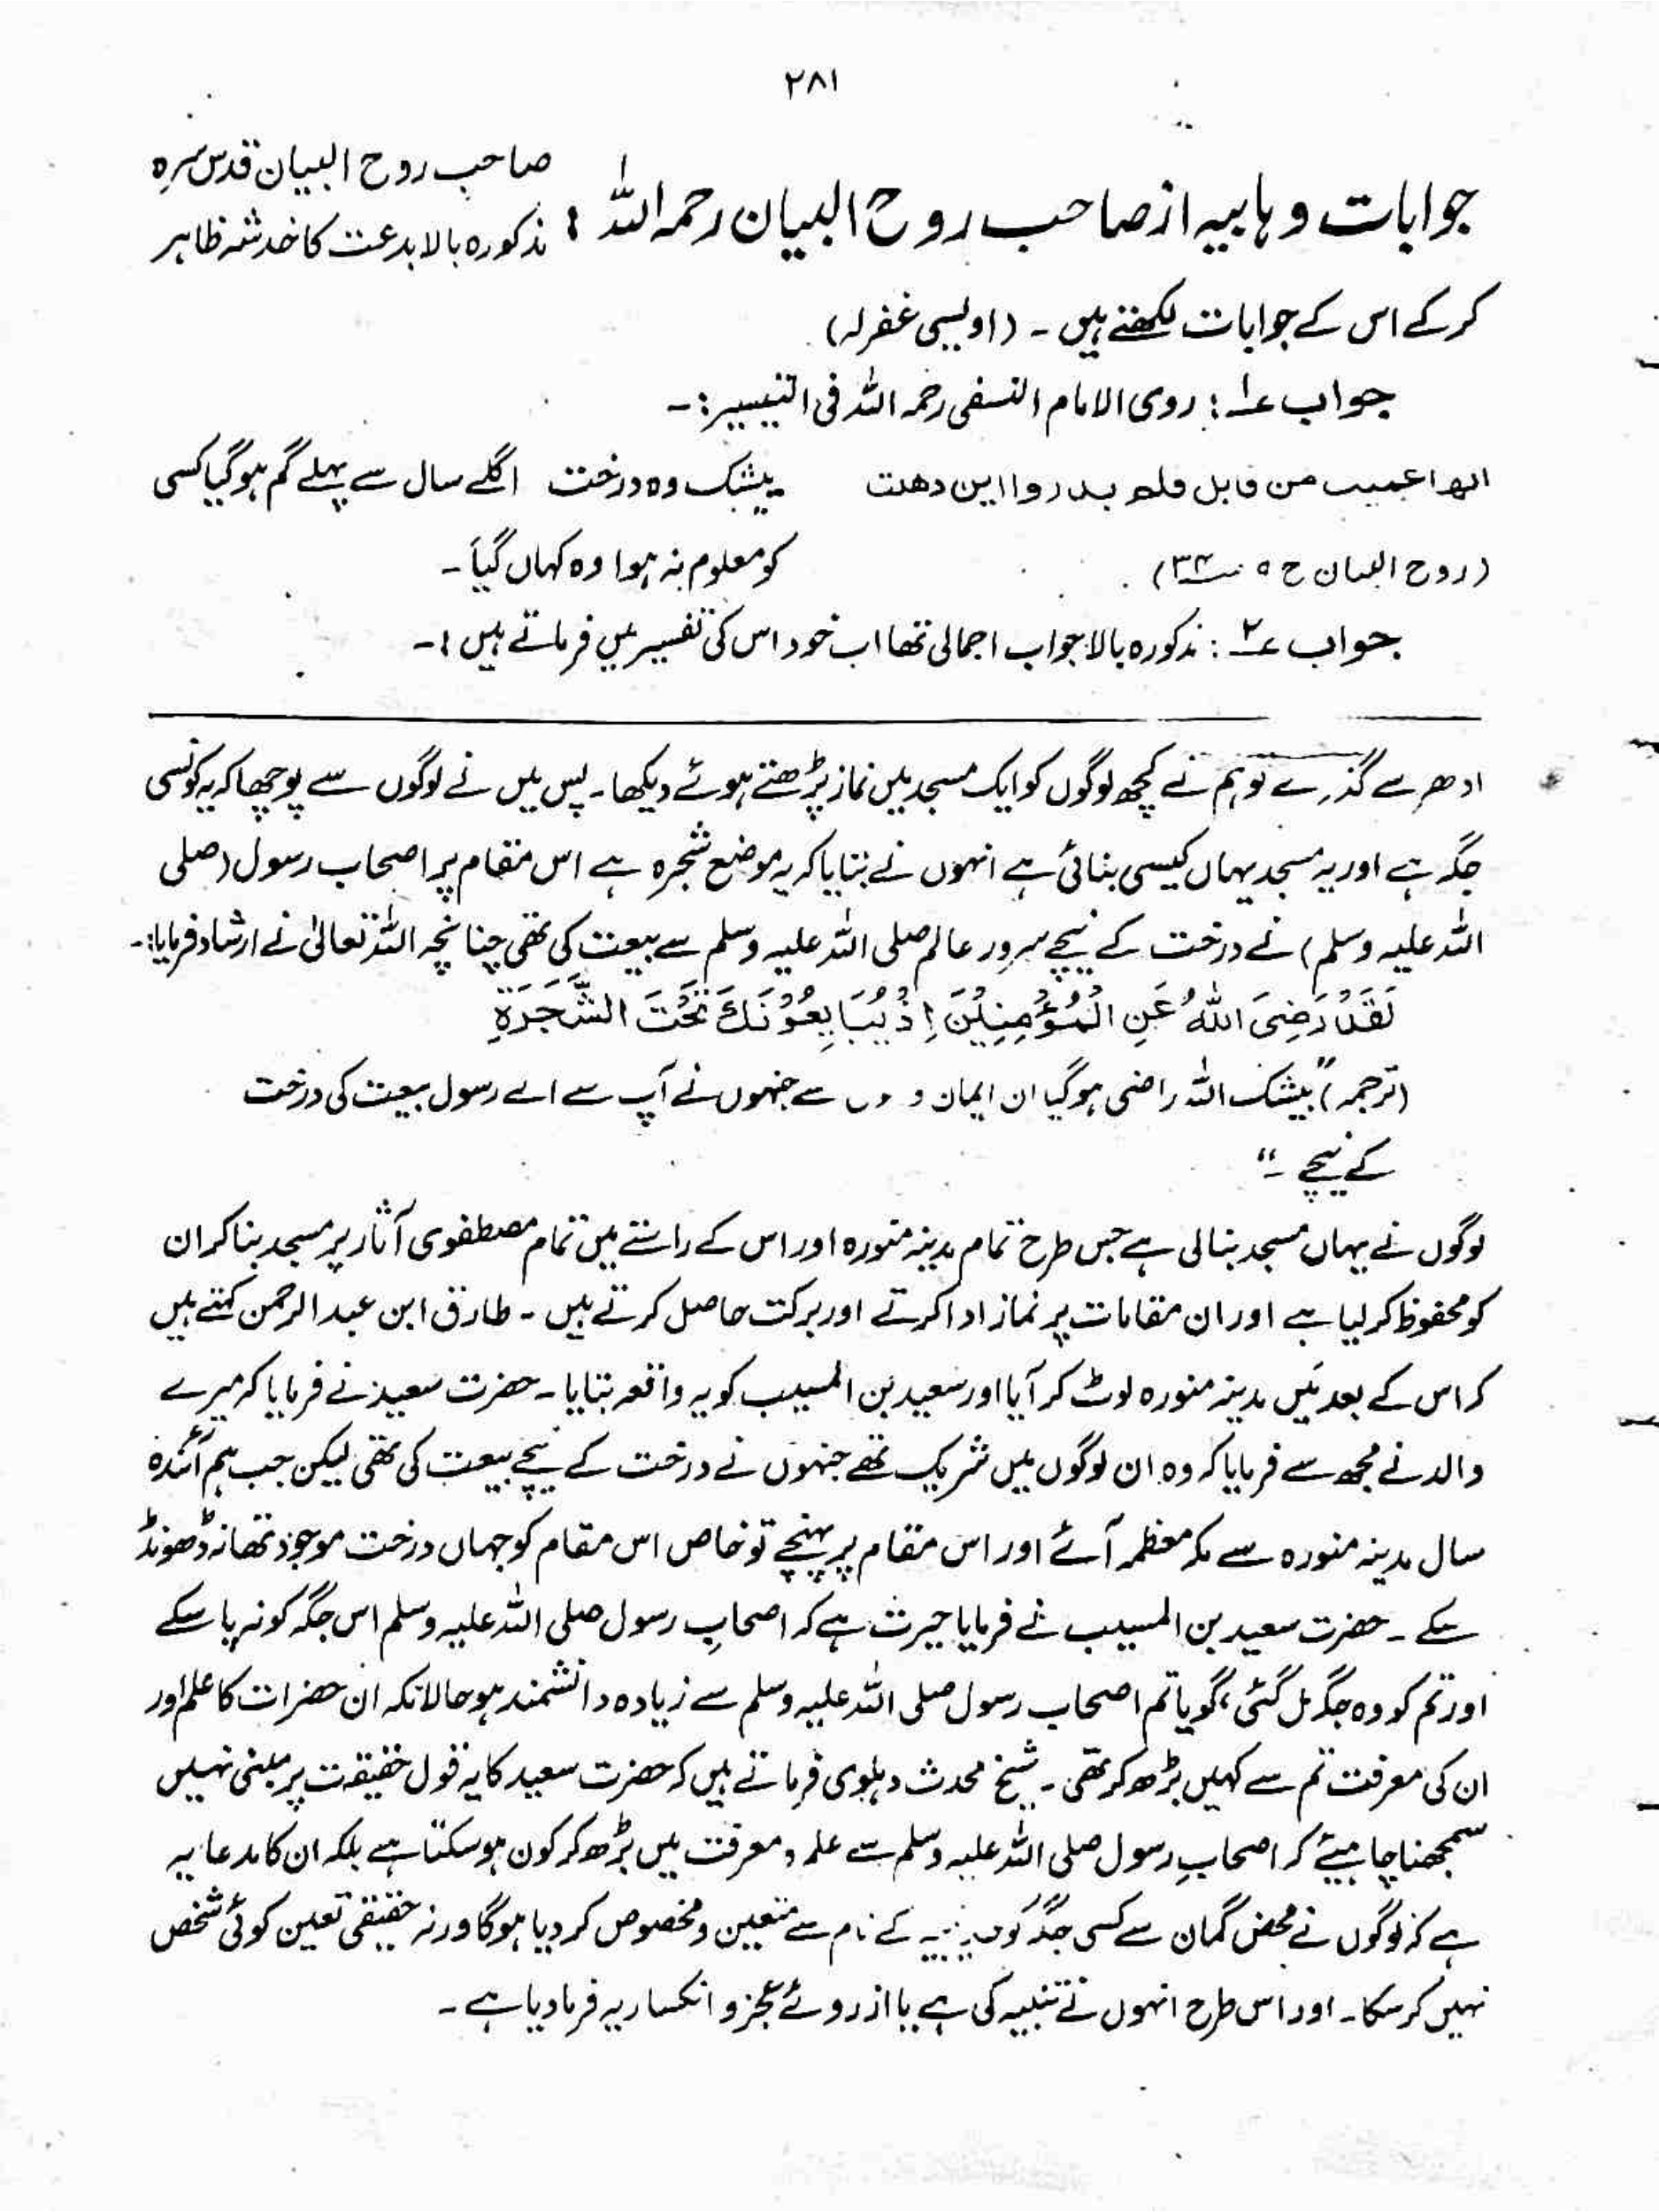 ۲۸۱
جوابات وہابیہ از صاحب روح البیان رحمہ اللہ : صاحب روح البیان قدس سرہ
مذکورہ بالا بدعت کا خدشہ ظاہر
کر کے اس کے جوابات لکھتے ہیں ۔ (اویسی غفرلہ)
جواب ۱ : روی الامام النسفی رحمہ اللہ فی التیسیر :۔
انها عميت من قابل فلم يدروا اين ذهبت بیشک وہ درخت اگلے سال سے پہلے گم ہو گیا کسی
(روح البیان ج ۵ ص۳۴) کو معلوم نہ ہوا وہ کہاں گیا ۔
جواب ۲ : مذکورہ بالا جواب اجمالی تھا اب خود اس کی تفسیر میں فرماتے ہیں :۔
ادھر سے گذرے تو ہم نے کچھ لوگوں کو ایک مسجد میں نماز پڑھتے ہوئے دیکھا۔ پس میں نے لوگوں سے پوچھا کہ یہ کونسی
جگہ ہے اور یہ مسجد یہاں کیسی بنائی ہے انہوں نے بتایا کہ یہ موضع شجرہ ہے اس مقام پر اصحاب رسول (صلی
اللہ علیہ وسلم) نے درخت کے نیچے سرور عالم صلی اللہ علیہ وسلم سے بیعت کی تھی چنانچہ اللہ تعالیٰ نے ارشاد فرمایا:۔
لَقَدْ رَضِیَ اللّٰهُ عَنِ الْمُؤْمِنِیْنَ اِذْ یُبَایِعُوْنَكَ تَحْتَ الشَّجَرَةِ
(ترجمہ) "بیشک اللہ راضی ہو گیا ان ایمان سے جنہوں نے آپ سے اے رسول بیعت کی درخت
کے نیچے ۔"
لوگوں نے یہاں مسجد بنالی ہے جس طرح تمام مدینہ منورہ اور اس کے راستے میں تمام مصطفوی آثار پر مسجد بنا کر ان
کو محفوظ کر لیا ہے اور ان مقامات پر نماز ادا کرتے اور برکت حاصل کرتے ہیں ۔ طارق ابن عبد الرحمن کہتے ہیں
کہ اس کے بعد مَیں مدینہ منورہ لوٹ کر آیا اور سعید بن المسیب کو یہ واقعہ بتایا ۔ حضرت سعید نے فرمایا کہ میرے
والد نے مجھ سے فرمایا کہ وہ ان لوگوں میں شریک تھے جنہوں نے درخت کے نیچے بیعت کی تھی لیکن جب ہم آئندہ
سال مدینہ منورہ سے مکہ معظمہ آئے اور اس مقام پر پہنچے تو خاص اس مقام کو جہاں درخت موجود تھا نہ ڈھونڈ
سکے ۔ حضرت سعید بن المسیب نے فرمایا حیرت ہے کہ اصحابِ رسول صلی اللہ علیہ وسلم اس جگہ کو نہ پا سکے
اور تم کو وہ جگہ مل گئی ، گویا تم اصحاب رسول صلی اللہ علیہ وسلم سے زیادہ دانشمند ہو حالانکہ ان حضرات کا علم اور
ان کی معرفت تم سے کہیں بڑھ کر تھی ۔ شیخ محدث دہلوی فرماتے ہیں کہ حضرت سعید کا یہ قول حقیقت پر مبنی نہیں
سمجھنا چاہیئے کہ اصحابِ رسول صلی اللہ علیہ وسلم سے علم و معرفت میں بڑھ کر کون ہو سکتا ہے بلکہ ان کا مدعا یہ
ہے کہ لوگوں نے محض گمان سے کسی جگہ کو کے نام سے متعین و مخصوص کر دیا ہوگا ورنہ حقیقی تعین کوئی شخص
نہیں کر سکا ۔ اور اس طرح انہوں نے تنبیہ کی ہے یا از روئے عجز و انکسار یہ فرما دیا ہے ۔